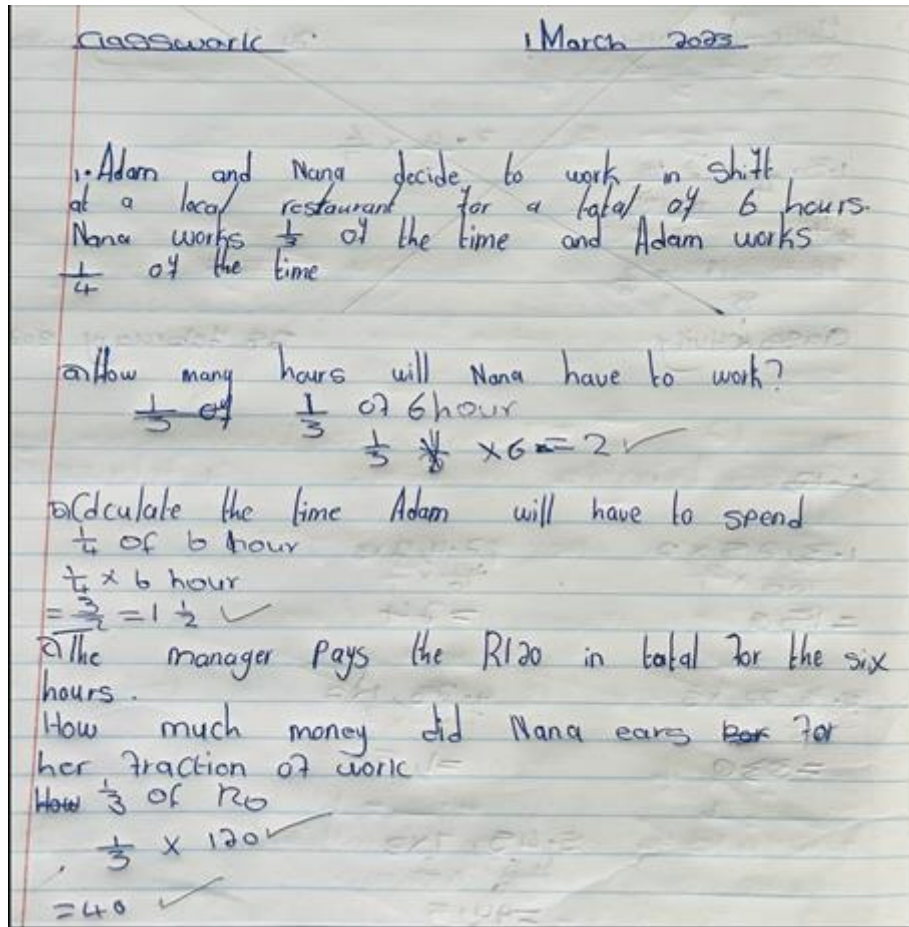 Classwork 1 March 2023
1. Adam and Nana decide to work in shift
at a local restaurant for a total of 6 hours.
Nana works 1/3 of the time and Adam works
1/4 of the time
a) How many hours will Nana have to work?
1/3 of 1/3 of 6 hour
1/3 × 6 = 2 ✓
b) Calculate the time Adam will have to spend
1/4 of 6 hour
1/4 × 6 hour
= 3/2 = 1 1/2 ✓
c) The manager pays the R120 in total for the six
hours.
How much money did Nana ears for
her fraction of work
How 1/3 of
1/3 × 120 ✓
= 40 ✓